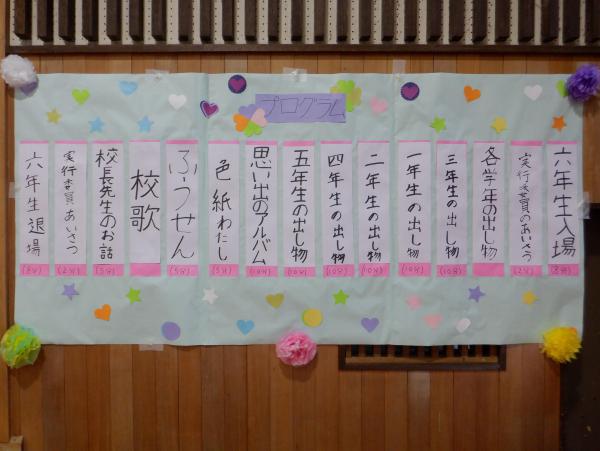 プログラム
六年生入場
(8分)
実行委員のあいさつ
(2分)
各学年の出し物
三年生の出し物
(10分)
一年生の出し物
(10分)
二年生の出し物
(10分)
四年生の出し物
(10分)
五年生の出し物
(10分)
思い出のアルバム
(10分)
色紙わたし
(5分)
ふうせん
(5分)
校歌
校長先生のお話
(5分)
実行委員あいさつ
(2分)
六年生退場
(8分)